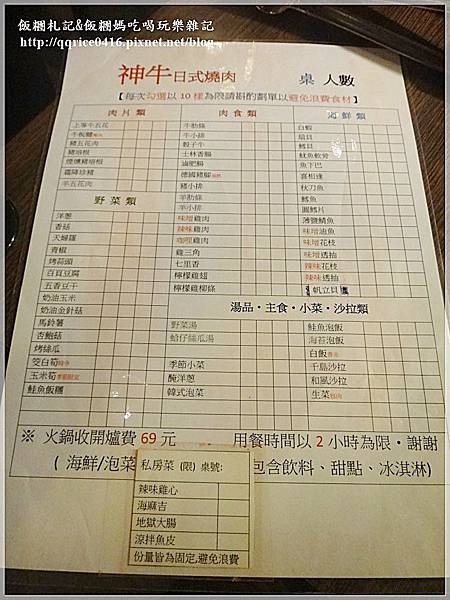 飯糰札記&飯糰媽吃喝玩樂雜記
http://qqrice0416.pixnet.net/blog
神牛日式燒肉 桌 人數
【每次勾選以 10 樣為限請斟酌劃單以避免浪費食材】
肉片類
上等牛五花
牛板腱
豬五花肉
豬培根
煙燻豬培根
霜降珍豬
羊五花肉
野菜類
洋蔥
香菇
天婦羅
青椒
烤蒜頭
百頁豆腐
五香豆干
奶油玉米
奶油金針菇
馬鈴薯
杏鮑菇
烤絲瓜
筊白筍時令
玉米筍季節限定
鮭魚飯糰
肉食類
牛肋條
牛小排
骰子牛
士林香腸
滷肥腸
德國豬腳
豬小排
羊肋條
羊小排
味噌雞肉
辣味雞肉
咖哩雞肉
雞三角
七里香
檸檬雞翅
檸檬雞柳條
海鮮類
白蝦
扇貝
鱈貝
魷魚軟骨
魚下巴
喜相逢
秋刀魚
鱈魚
圓鱈片
薄鹽鯖魚
味噌油魚
味噌花枝
味噌透抽
辣味花枝
辣味透抽
帆立貝
湯品・主食・小菜・沙拉類
野菜湯
蛤仔絲瓜湯
季節小菜
醃洋蔥
韓式泡菜
鮭魚泡飯
海苔泡飯
白飯
千島沙拉
和風沙拉
生菜包肉
※ 火鍋收開爐費 69 元 用餐時間以 2 小時為限・謝謝
( 海鮮/泡菜 包含飲料、甜點、冰淇淋)
私房菜 (限) 桌號:
辣味雞心
海麻吉
地獄大腸
涼拌魚皮
份量皆為固定,避免浪費